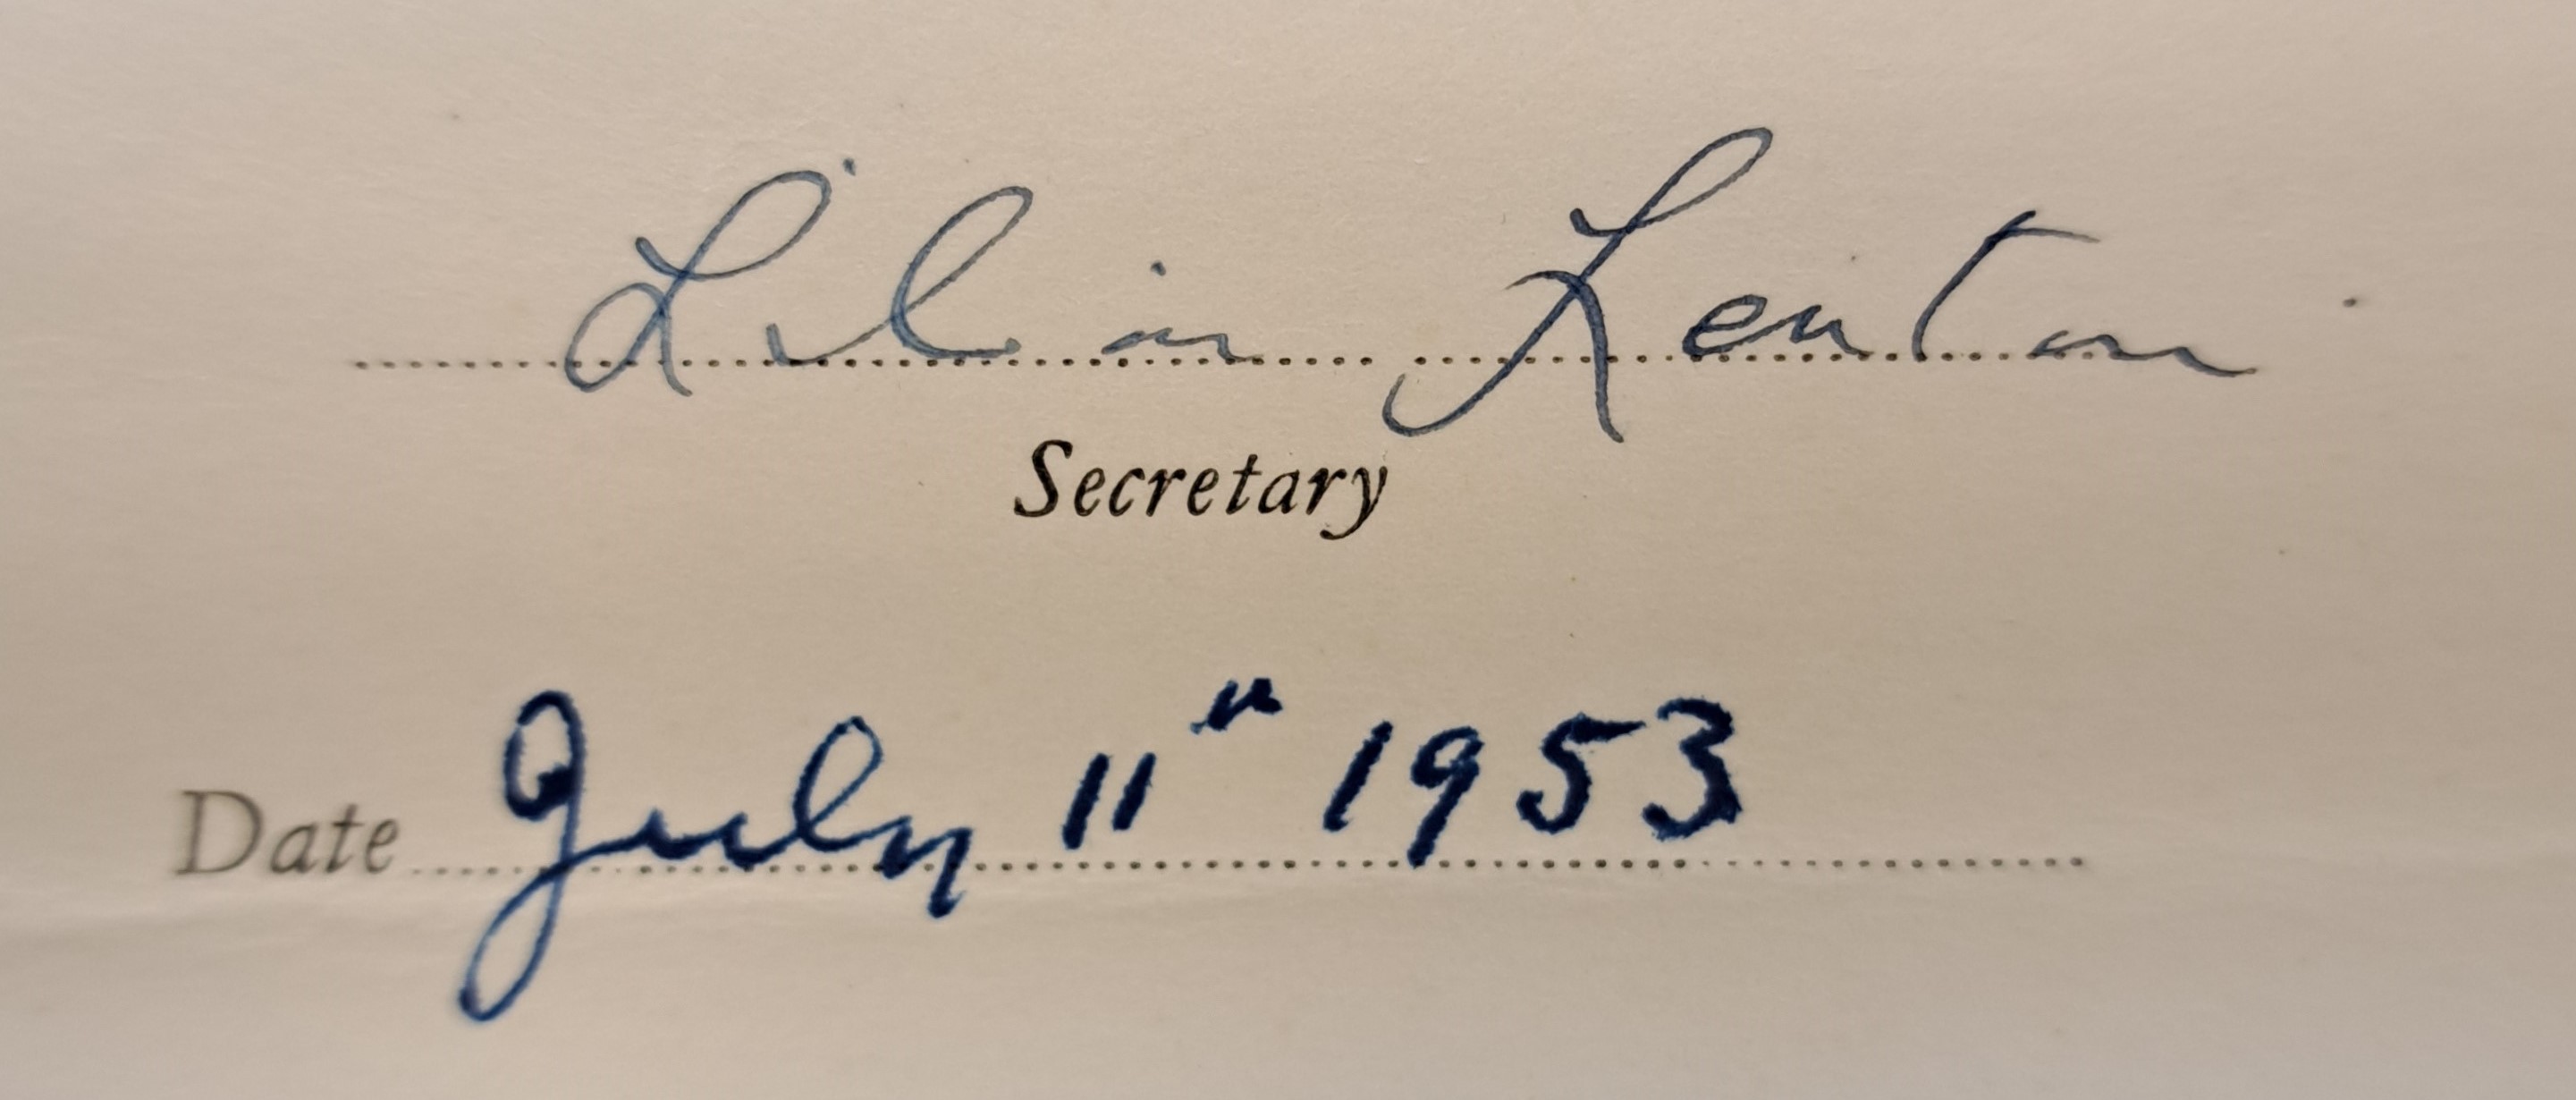 Lilian Lenton
Secretary
Date July 11th 1953